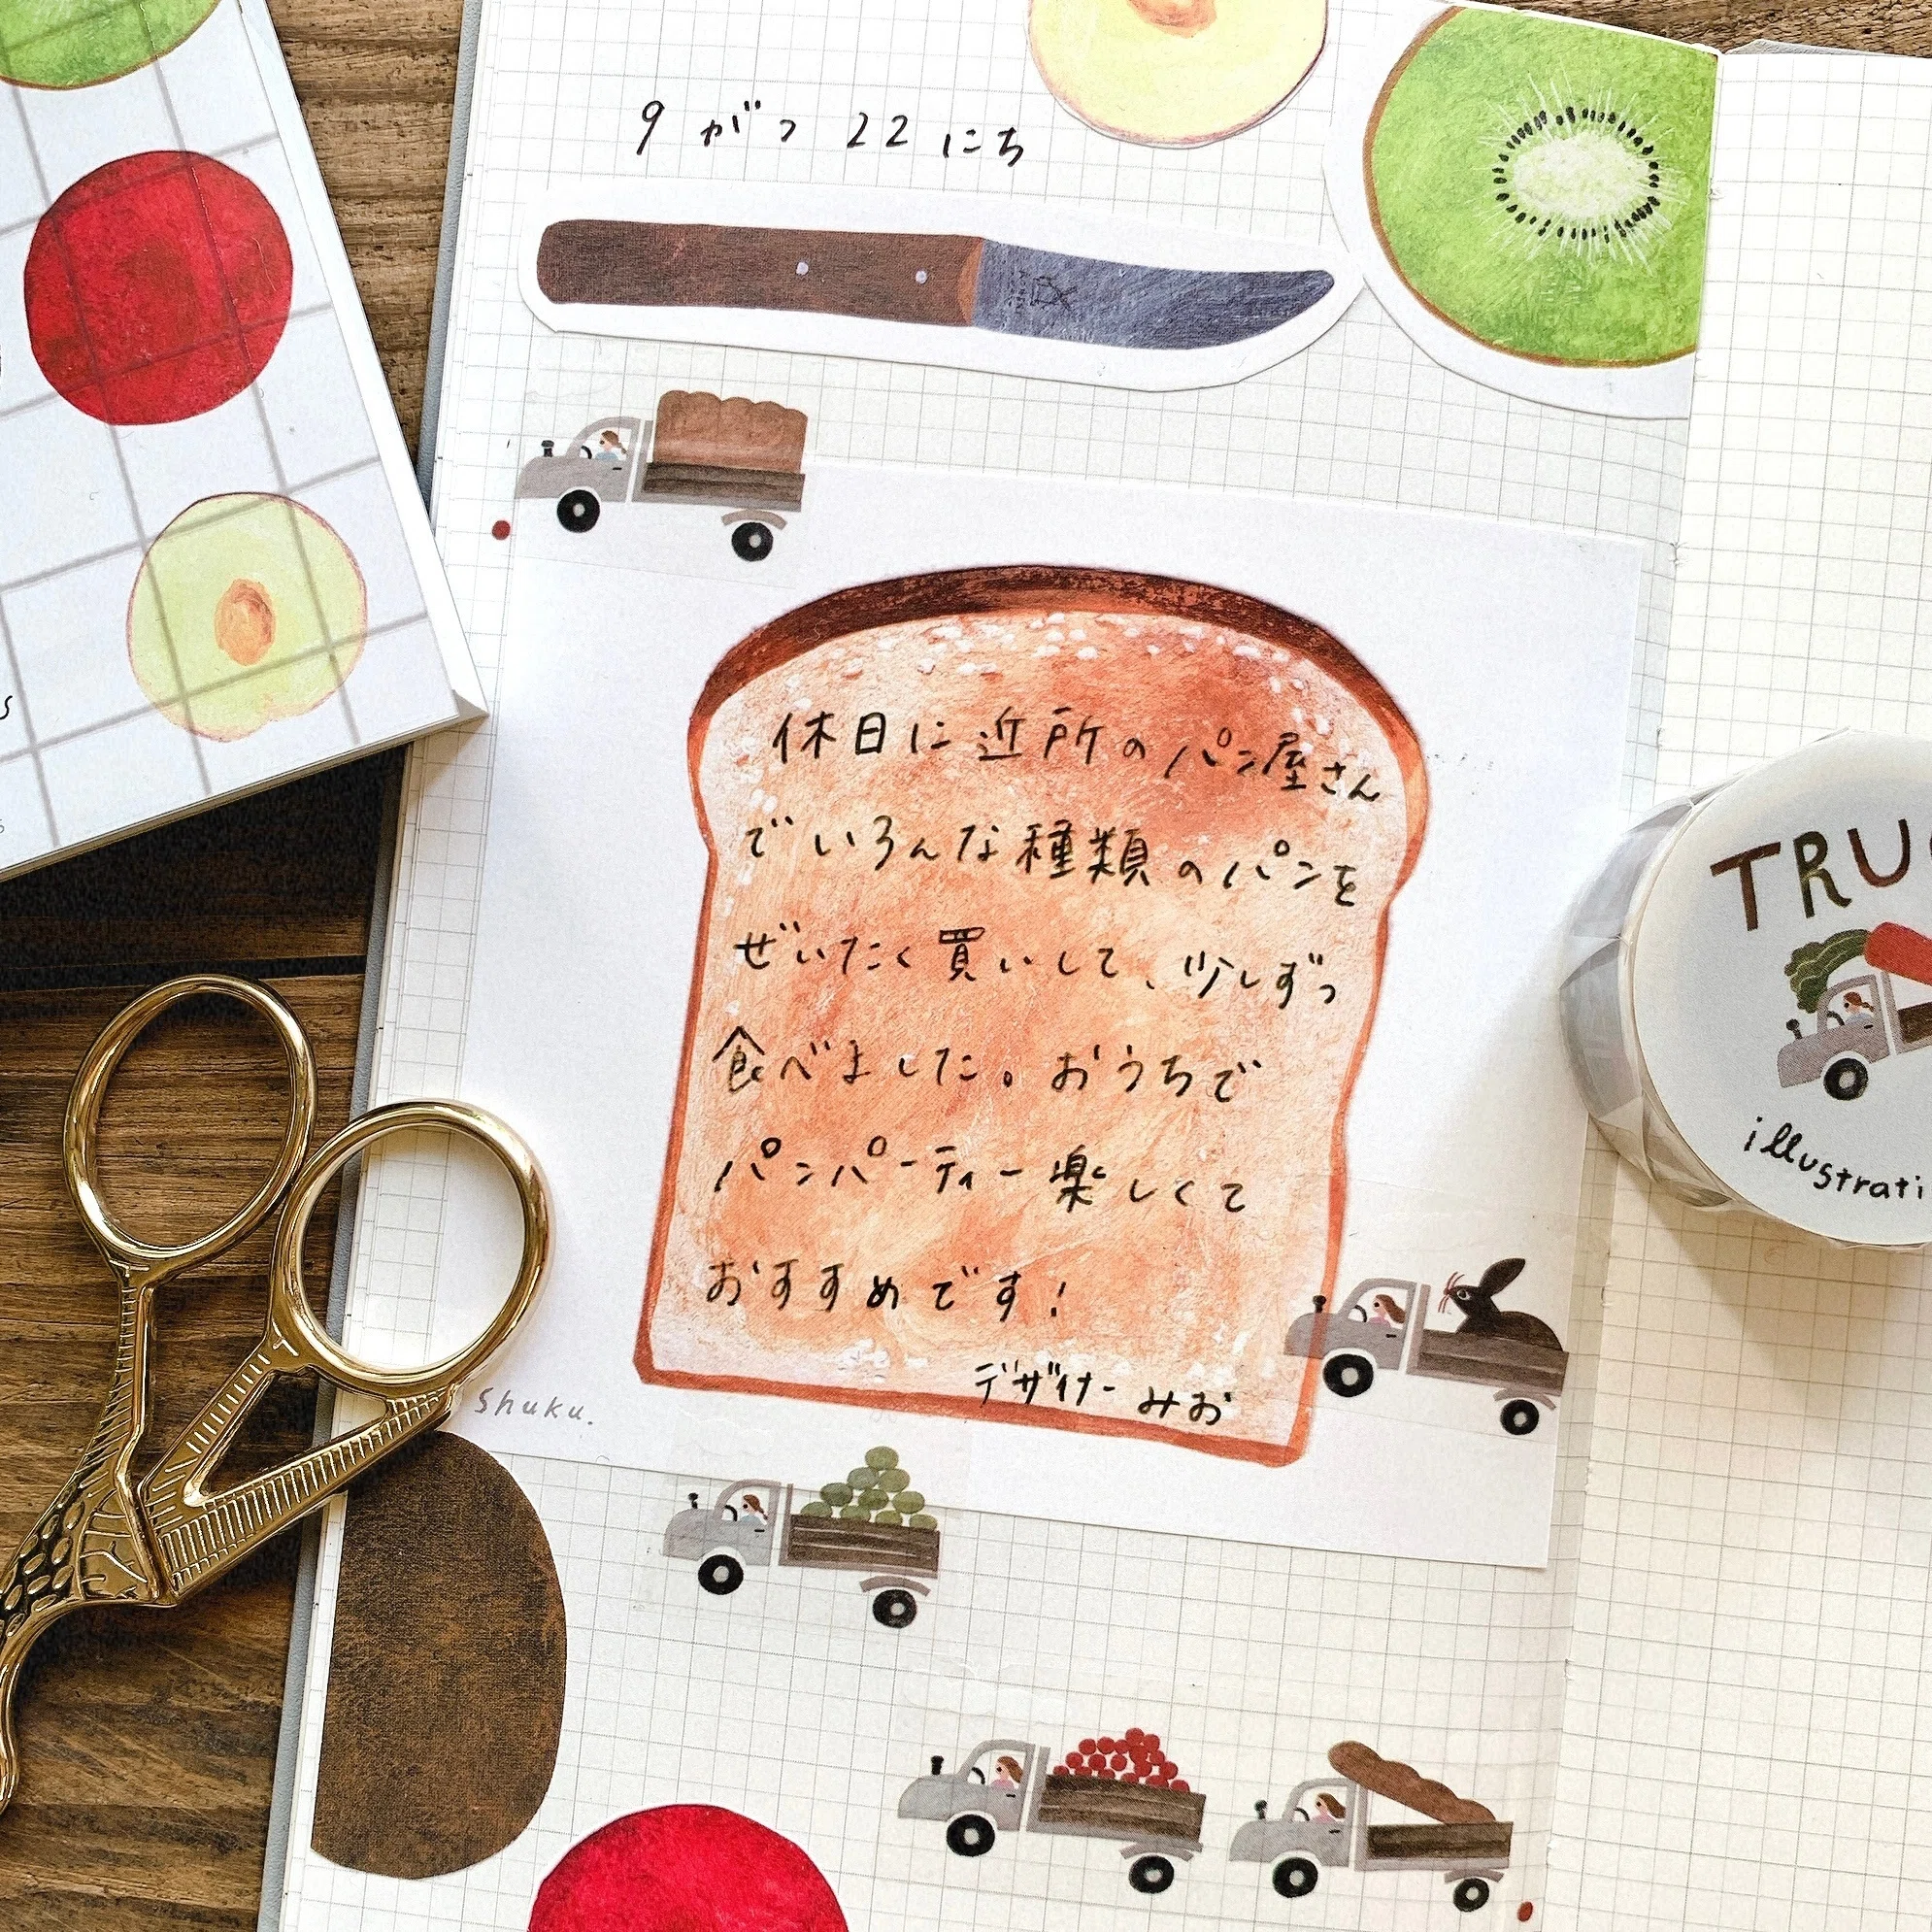 9 がつ 22 にち
休日に近所のパン屋さん
でいろんな種類のパンを
ぜいたく買いして、少しずつ
食べました。おうちで
パンパーティー楽しくて
おすすめです!
デザイナー みお
shuku.
TRU
illustrati